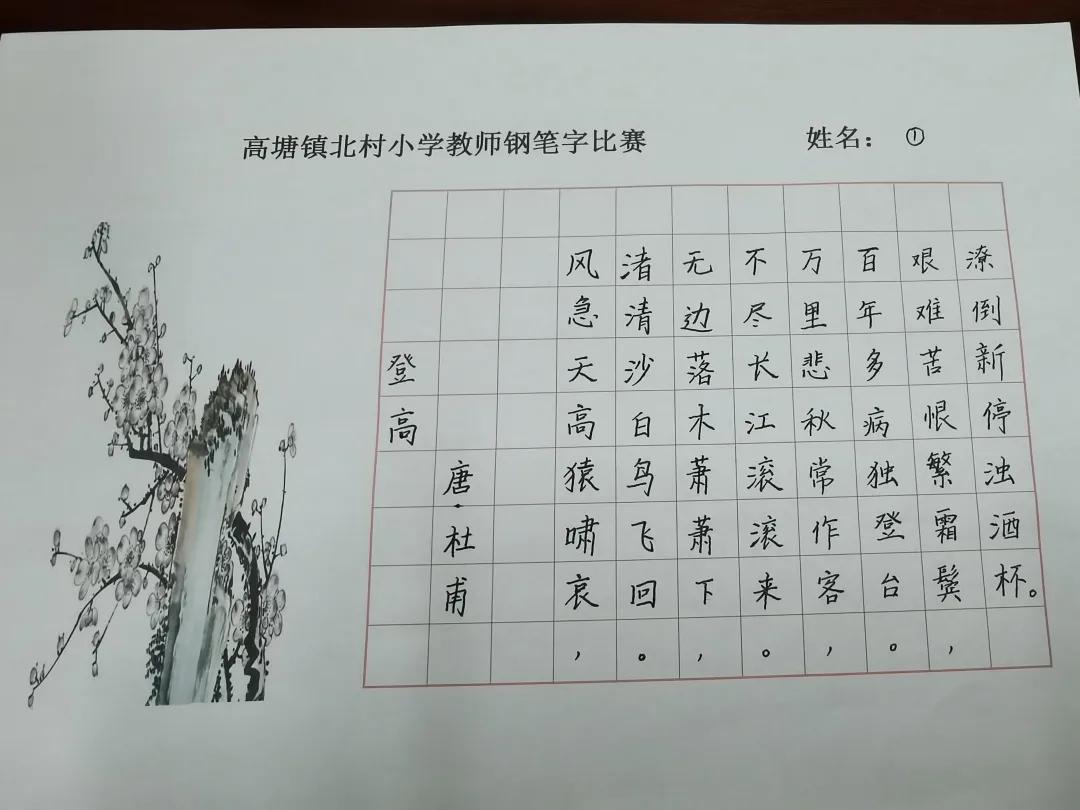 高塘镇北村小学教师钢笔字比赛
姓名： ①
登高
唐·杜甫
风急天高猿啸哀，
渚清沙白鸟飞回。
无边落木萧萧下，
不尽长江滚滚来。
万里悲秋常作客，
百年多病独登台。
艰难苦恨繁霜鬓，
潦倒新停浊酒杯。